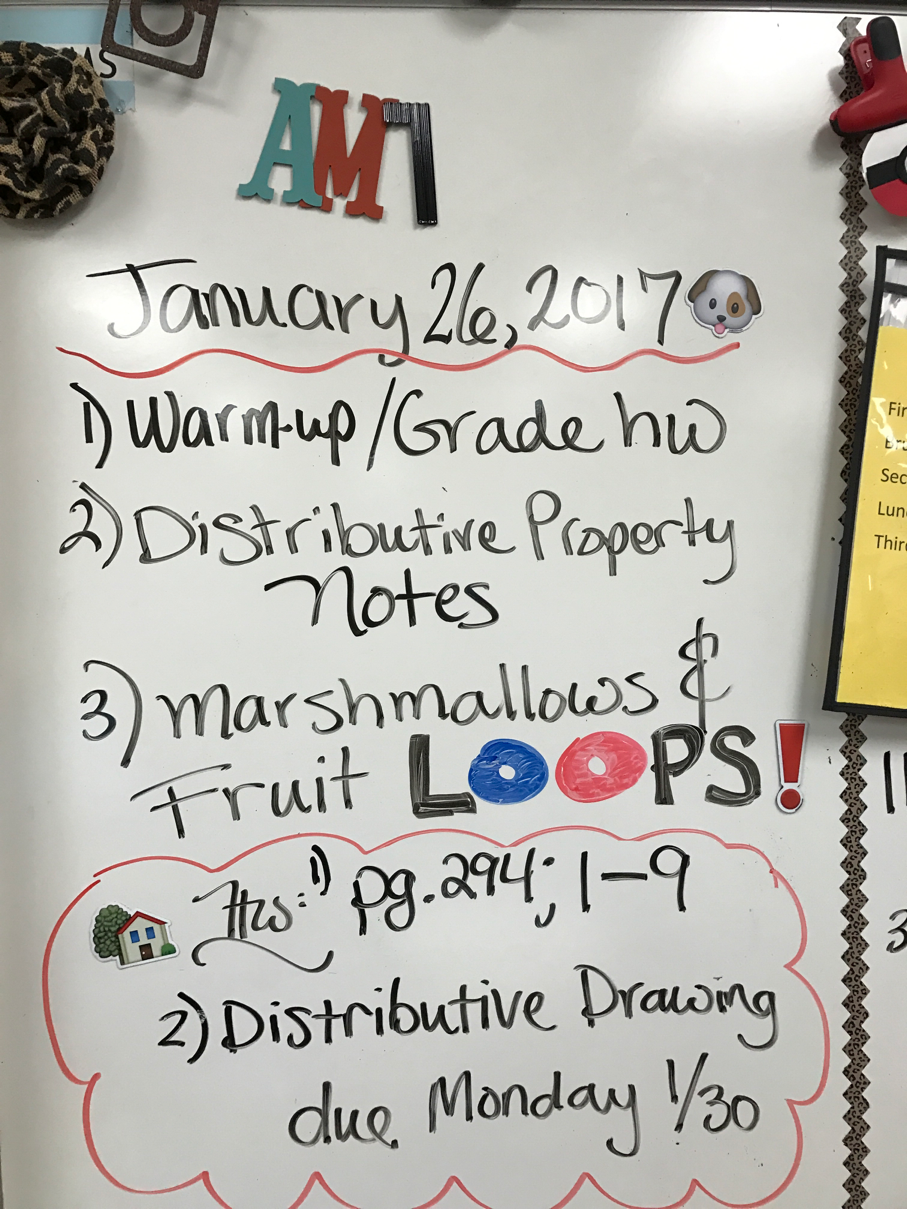 AS
AM7
January 26, 2017
1) Warm-up/Grade hw
2) Distributive Property
Notes
3) Marshmallows &
Fruit LOOPS!
Hw: 1) pg. 294; 1-9
2) Distributive Drawing
due Monday 1/30
Fir
Sec
Lun
Third